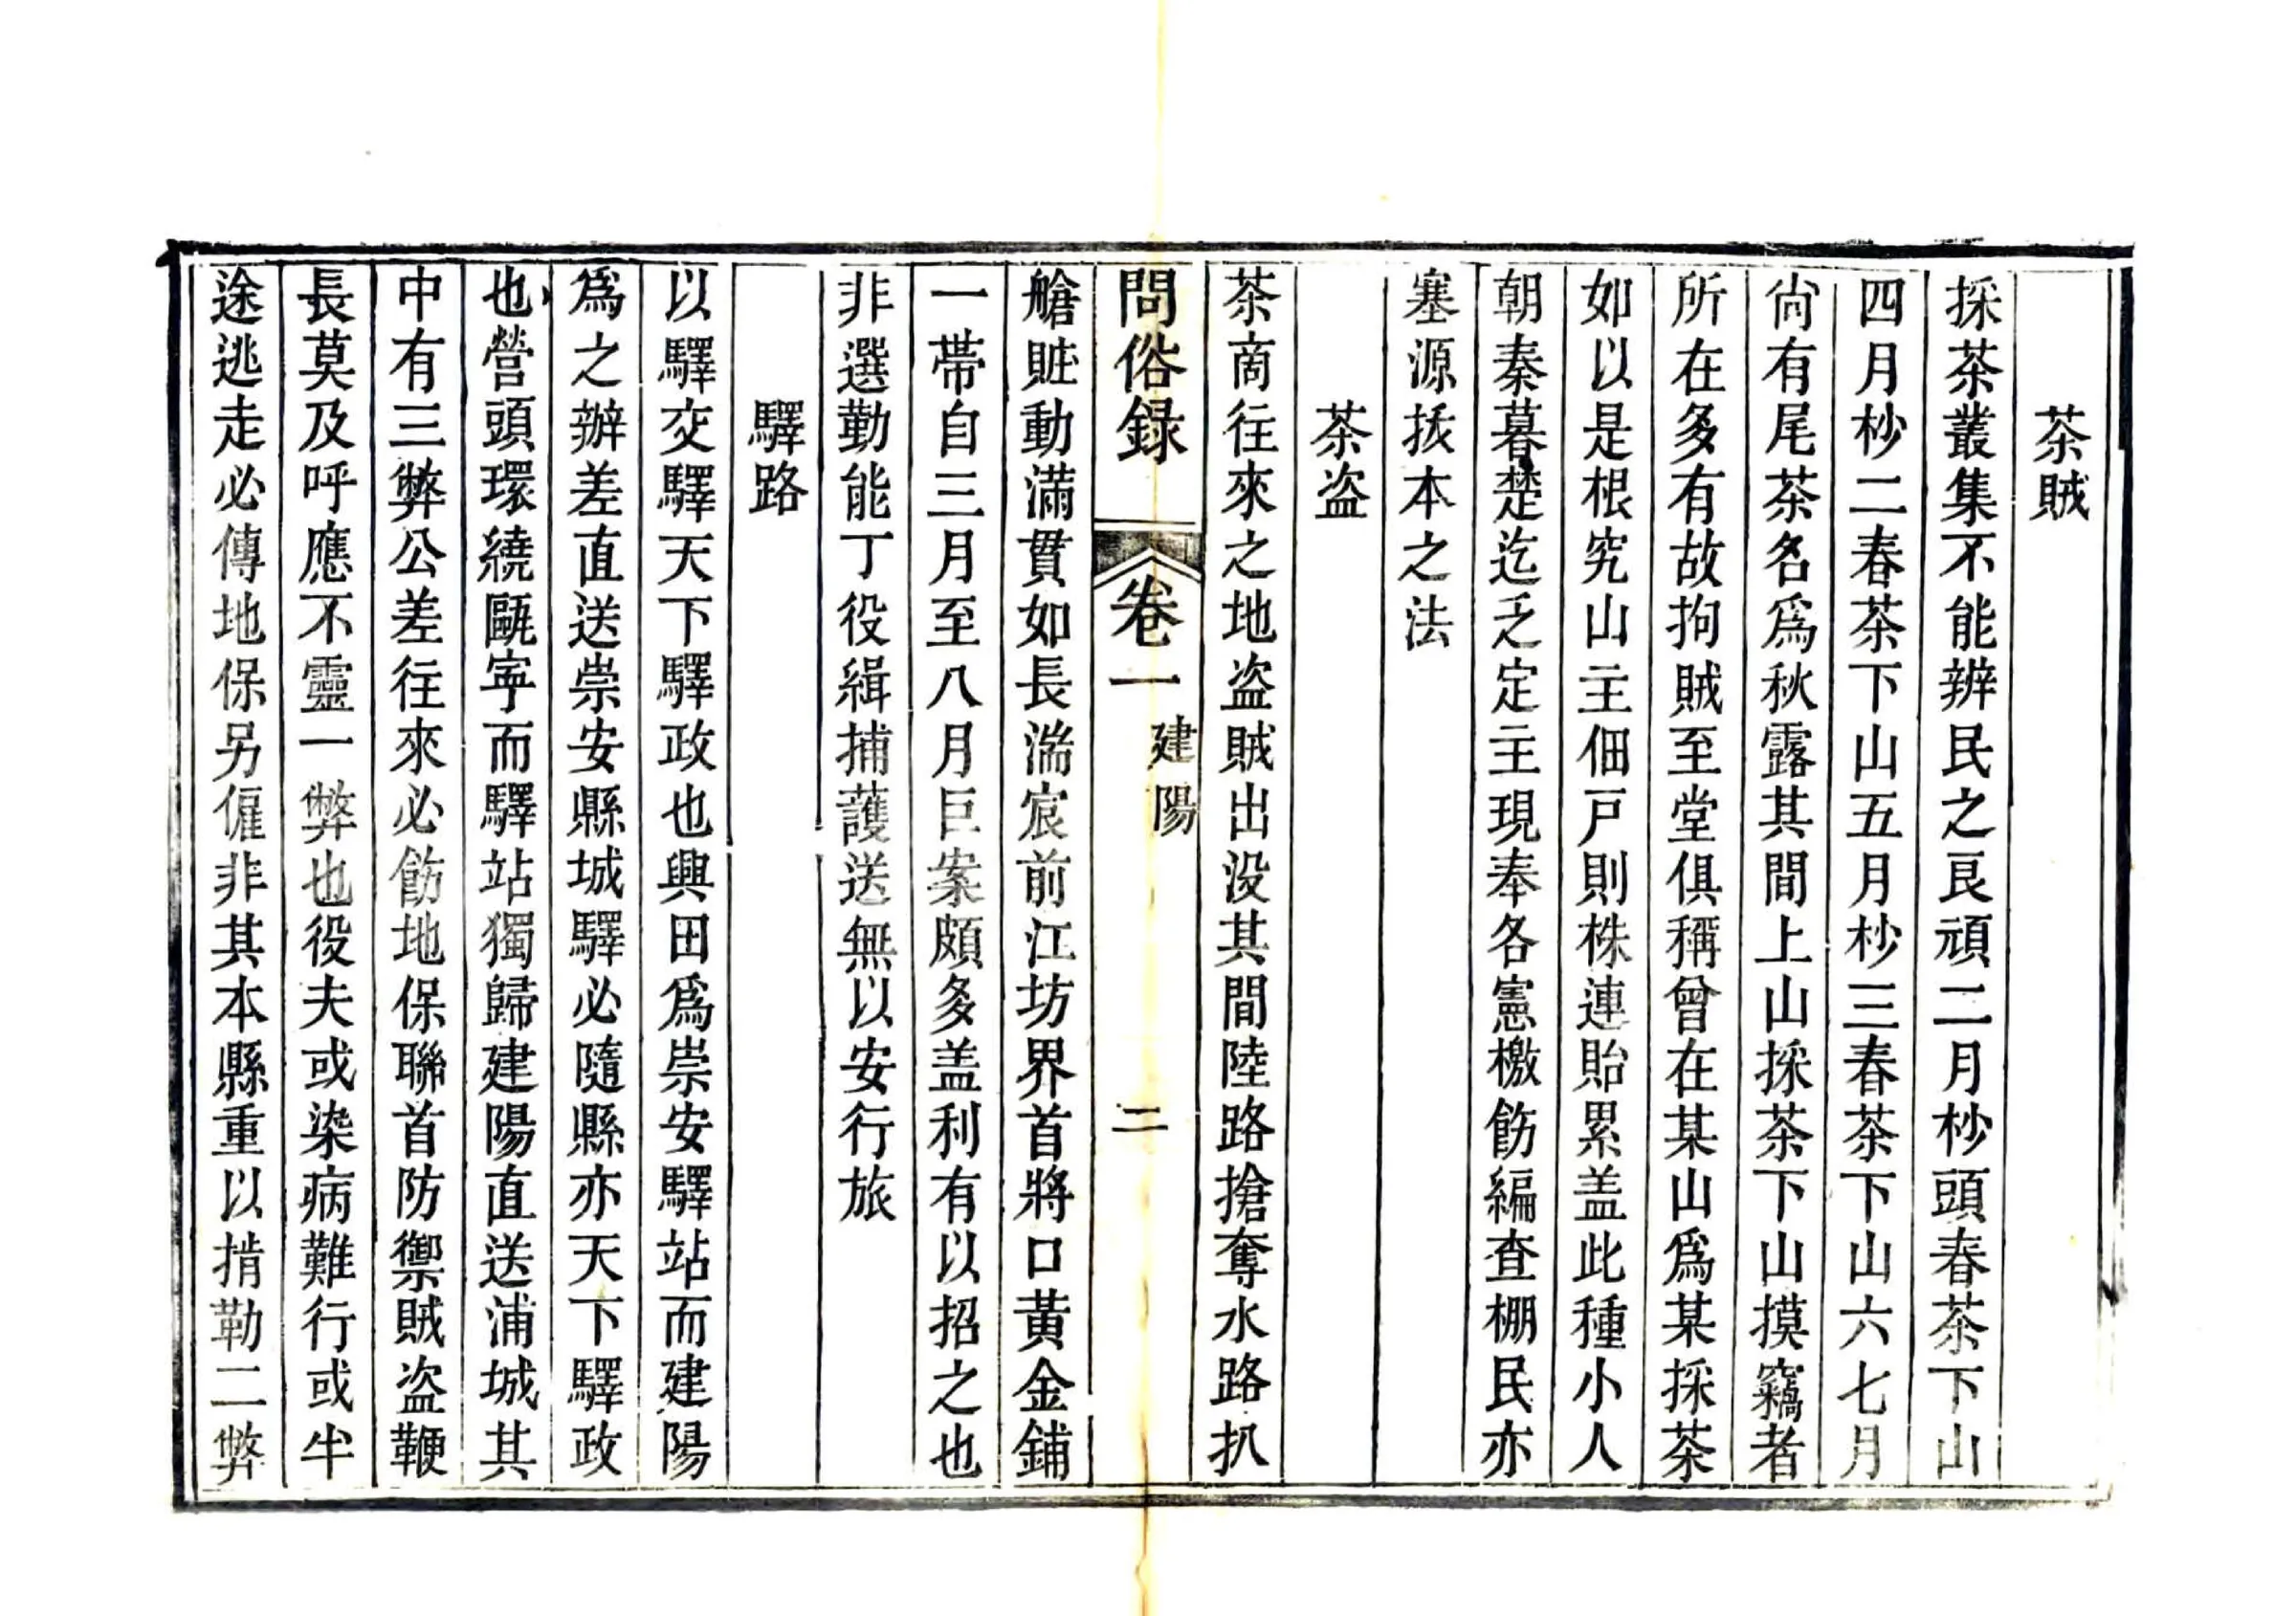 茶賊
採茶叢集不能辨民之良頑二月杪頭春茶下山
四月杪二春茶下山五月杪三春茶下山六七月
尙有尾茶名爲秋露其間上山採茶下山摸竊者
所在多有故拘賊至堂俱稱曾在某山爲某採茶
如以是根究山主佃戸則株連貽累盖此種小人
朝秦暮楚迄乏定主現奉各憲檄飭編查棚民亦
塞源拔本之法
茶盗
茶商往來之地盗賊出没其間陸路搶奪水路扒
問俗録 卷一 建陽 二
艙賍動滿貫如長湍宸前江坊界首將口黃金鋪
一帶自三月至八月巨案頗多盖利有以招之也
非選勤能丁役緝捕護送無以安行旅
驛路
以驛交驛天下驛政也興田爲崇安驛站而建陽
爲之辦差直送崇安縣城驛必隨縣亦天下驛政
也營頭環繞甌寜而驛站獨歸建陽直送浦城其
中有三弊公差往來必飭地保聯首防禦賊盗鞭
長莫及呼應不靈一弊也役夫或染病難行或半
途逃走必傳地保另僱非其本縣重以掯勒二弊